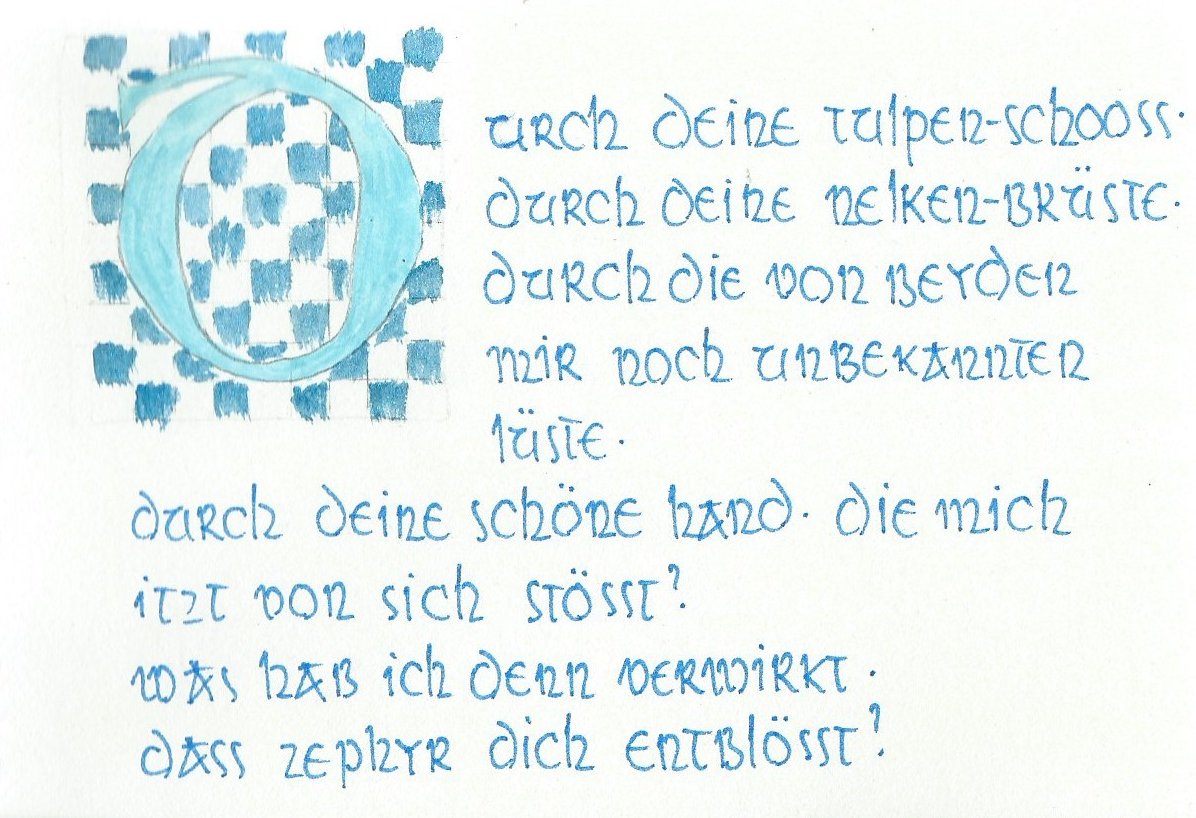 Durch deine Tulpen-schooss.
durch deine nelken-brüste.
durch die von beyden
mir noch unbekannten
lüste.
durch deine schöne hand. die mich
itzt von sich stösst?
was hab ich denn verwirkt.
dass zephyr dich entblösst?